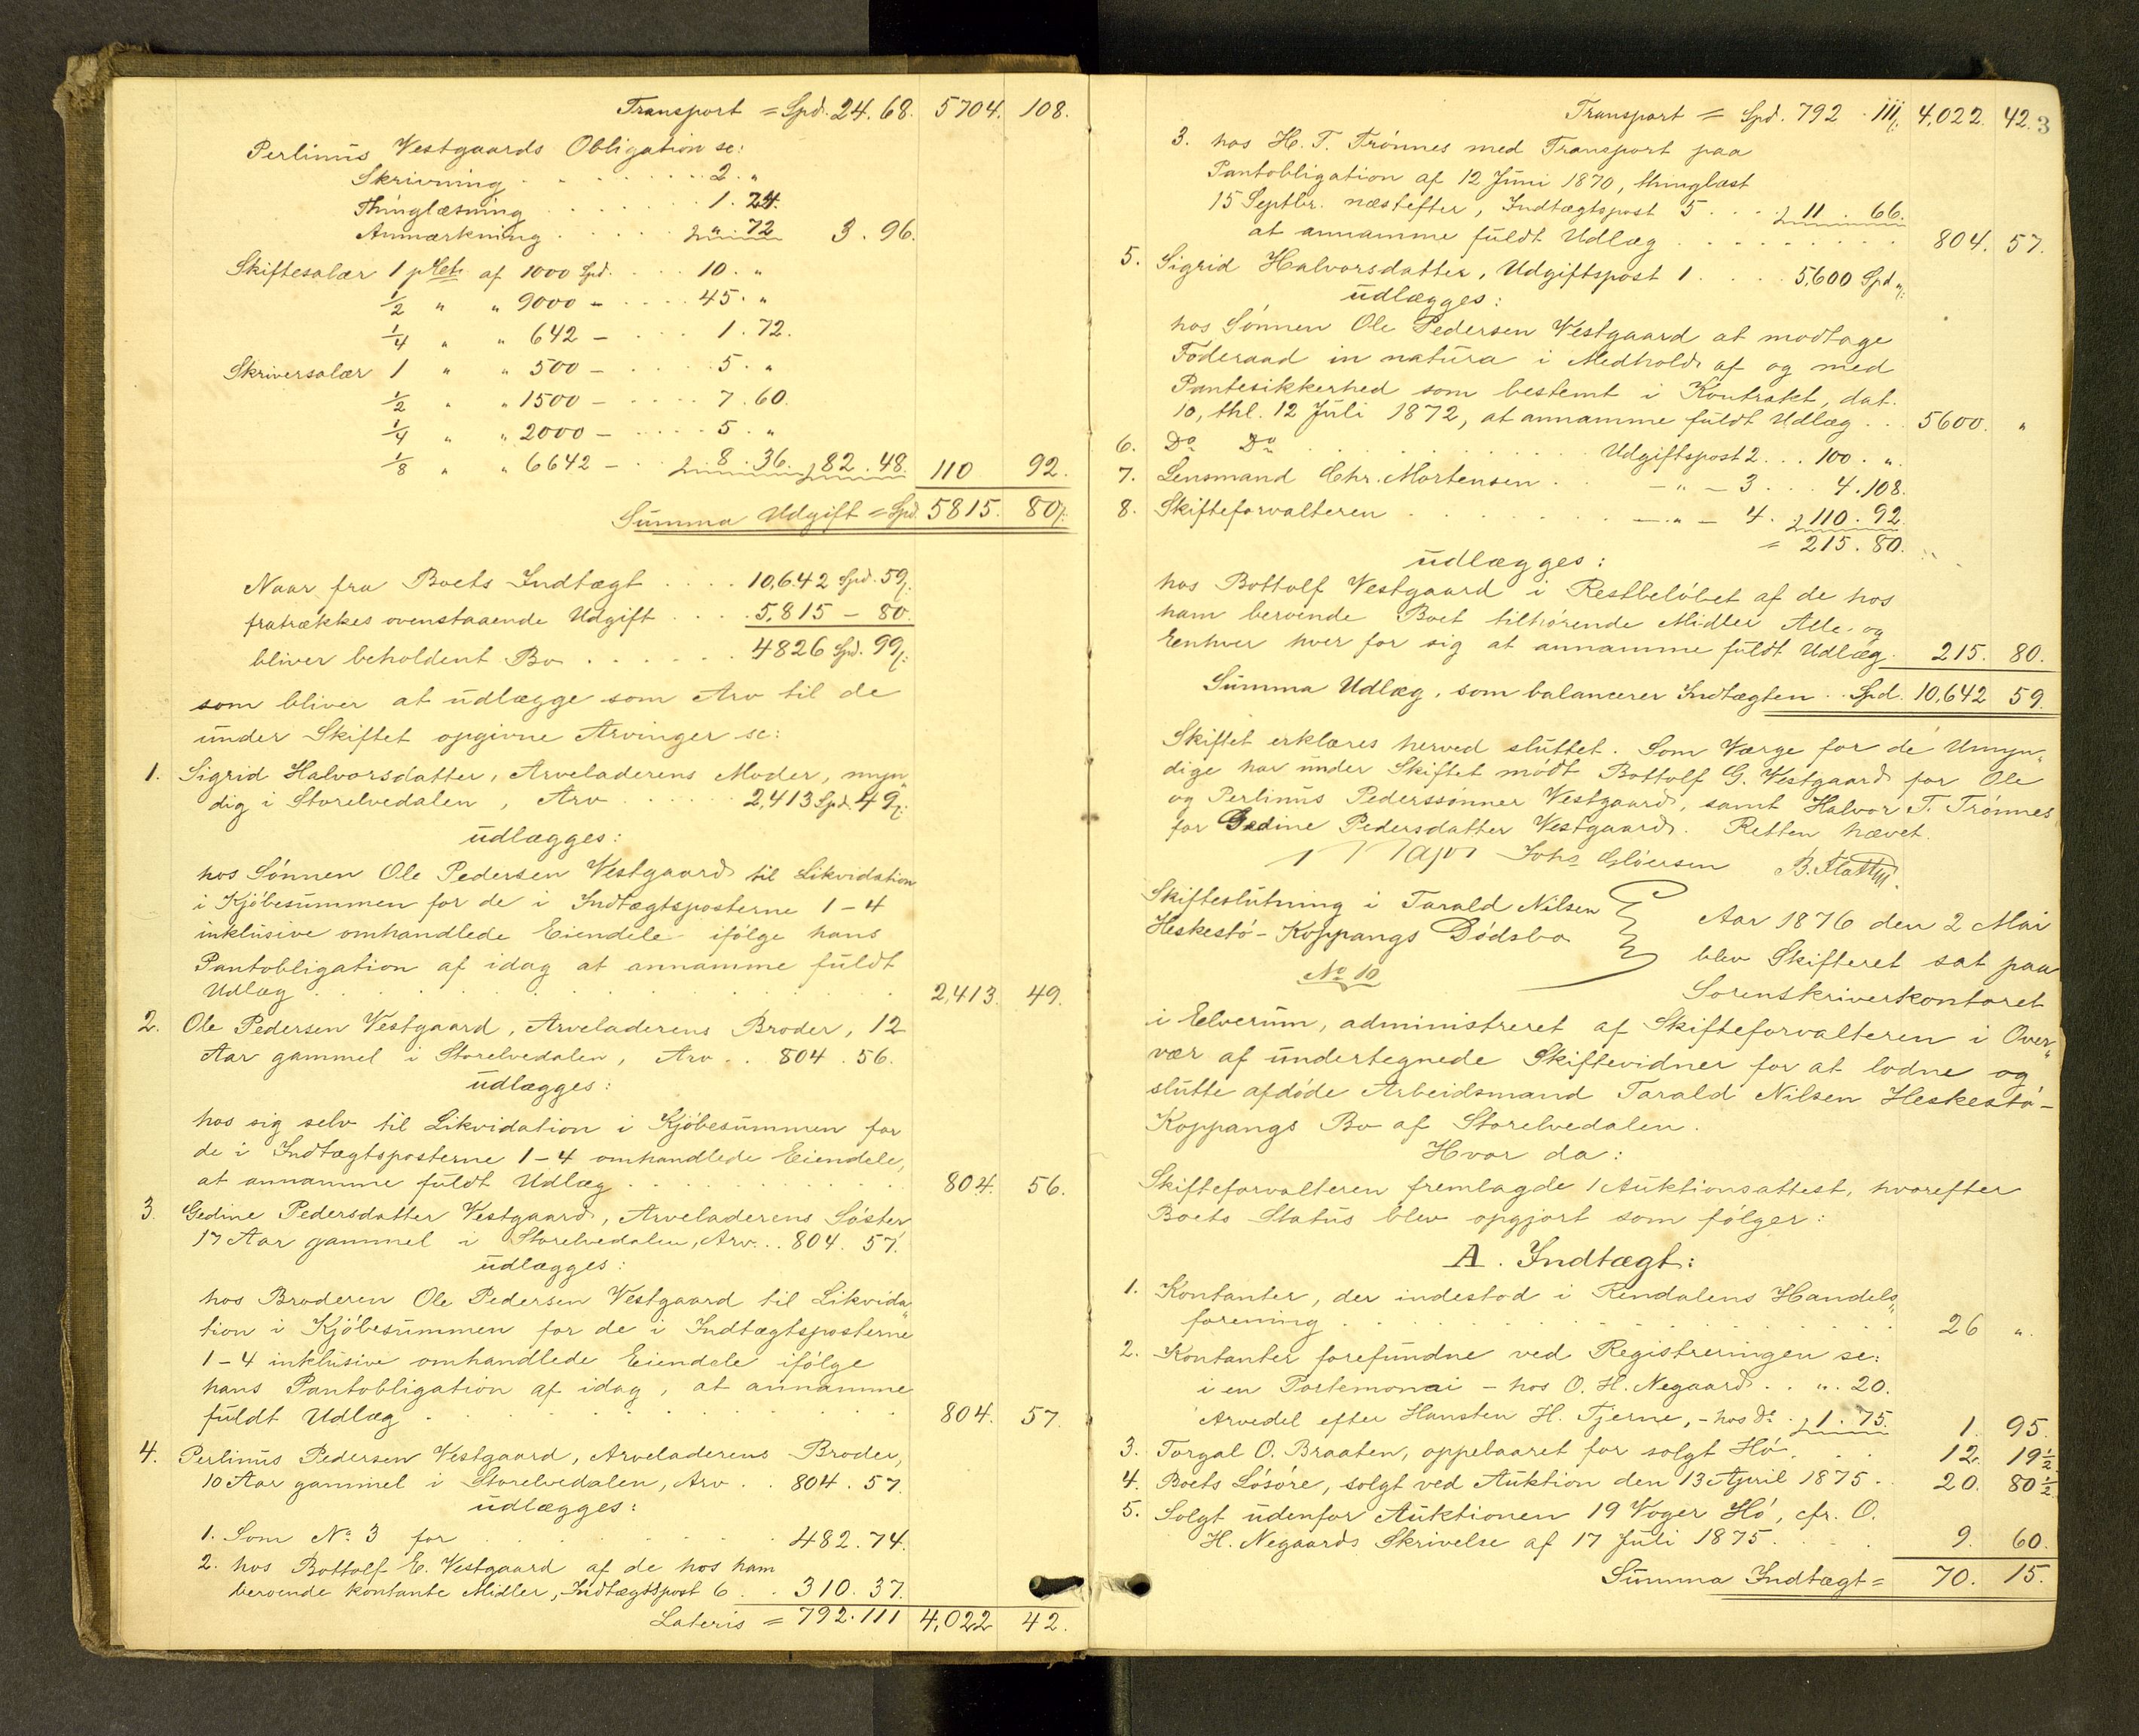 Transport = Spd. 24. 68. 5704. 108.
Perlinus Vestgaards Obligation sc:
Skrivning . . . . . . 2. "
Thinglæsning . . . . . . 1. 24.
Anmærkning . . . . . ". 72 3. 96.
Skiftesalær 1 pCt. af 1000 Spd. . . . 10. "
½ " " 9000 - . . . . 45. "
¼ " " 642 - . . . 1. 72.
Skriversalær 1 " " 500 - . . . . 5. "
½ " " 1500 - . . . . 7. 60.
¼ " " 2000 - . . . . 5. "
⅛ " " 6642 - . . 8. 36. 82. 48. 110 92.
Summa Udgift = Spd. 5815. 80/:
Naar fra Boets Indtægt . . . . 10,642 Spd. 59/:
fratrækkes ovenstaaende Udgift . . . . 5,815 - 80.
bliver beholdent Bo . . . . . . 4826 Spd. 99/:
som bliver at udlægge som Arv til de
under Skiftet opgivne Arvinger sc:
1. Sigrid Halvorsdatter, Arveladerens Moder, myn„
dig i Storelvedalen, Arv . . . . . 2,413 Spd. 49/:
udlægges:
hos Sønnen Ole Pedersen Vestgaard til Likvidation
i Kjöbesummen for de i Indtægtsposterne 1 - 4
inklusive omhandlede Eiendele ifølge hans
Pantobligation af idag at annamme fuldt
Udlæg . . . . . . . . . 2,413. 49.
2. Ole Pedersen Vestgaard, Arveladerens Broder, 12
Aar gammel i Storelvedalen, Arv . . 804. 56.
udlægges:
hos sig selv til Likvidation i Kjöbesummen for
de i Indtægtsposterne 1 - 4 omhandlede Eiendele,
at annamme fuldt Udlæg . . . . . . . 804. 56.
3. Gedine Pedersdatter Vestgaard, Arveladerens Søster
17 Aar gammel i Storelvedalen, Arv . . . 804. 57.
udlægges:
hos Broderen Ole Pedersen Vestgaard til Likvida„
tion i Kjöbesummen for de i Indtægtsposterne
1 - 4 inklusive omhandlede Eiendele ifølge
hans Pantobligation af idag, at annamme
fuldt Udlæg . . . . . . . . 804. 57.
4. Perlinus Pedersen Vestgaard, Arveladerens Broder,
10 Aar gammel i Storelvedalen, Arv . . 804. 57.
udlægges:
1. Som No 3 for . . . . . . 482. 74.
2. hos Bottolf E. Vestgaard af de hos ham
beroende kontante Midler, Indtægtspost 6 . . 310. 37.
Lateris = 792. 111 4,022 42.
Transport = Spd. 792. 111/: 4,022. 42. 3
3. hos H. T. Trønnes med Transport paa
Pantobligation af 12 Juni 1870, thinglæst
15 Septbr. næstefter, Indtægtspost 5 . . . . 11. 66.
at annamme fuldt Udlæg . . . . . . . . . 804. 57.
5. Sigrid Halvorsdatter, Udgiftspost 1 . . . . 5,600 Spd "/:
udlægges:
hos Sønnen Ole Pedersen Vestgaard at modtage
Føderaad in natura i Medhold af og med
Pantesikkerhed som bestemt i Kontrakt, dat.
10, thl. 12 Juli 1872, at annamme fuldt Udlæg . . . 5600. "
6. Do Do . . . . . . . Udgiftspost 2 . . . 100. ".
7. Lensmand Chr. Mortensen . . - " - 3 . . . 4. 108.
8. Skifteforvalteren . . . . . . . - " - 4. 110. 92.
= 215. 80.
udlægges:
hos Bottolf Vestgaard i Restbeløbet af de hos
ham beroende Boet tilhørende Midler Alle og
Eenhver hver for sig at annamme fuldt Udlæg. 215. 80.
Summa Udlæg, som balancerer Indtægten . . Spd. 10,642 59.
Skiftet erklæres herved sluttet. Som Værge for de Umyn„
dige har under Skiftet mødt Bottolf G. Vestgaard for Ole
og Perlinus Pederssønner Vestgaard, samt Halvor T. Trønnes
for Gedine Pedersdatter Vestgaard. Retten hævet.
Johs Gløersen
Skifteslutning i Tarald Nilsen
Heskestø - Koppangs Dödsbo
No 10
Aar 1876 den 2 Mai
blev Skifteret sat paa
Sorenskriverkontoret
i Elverum, administreret af Skifteforvalteren i Over„
vær af undertegnede Skiftevidner for at lodne og
slutte afdøde Arbeidsmand Tarald Nilsen Heskestø -
Koppangs Bo af Storelvedalen.
Hvor da:
Skifteforvalteren fremlagde 1 Auktionsattest, hvorefter
Boets Status blev opgjort som følger:
A. Indtægt:
1. Kontanter, der indestod i Rendalens Handels„
forening . . . . . . . . . . . 26 ".
2. Kontanter forefundne ved Registreringen sc:
i en Portemonai - hos O. H. Negaard . . ". 20.
Arvedel efter Hansten H. Tjerne, - hos do . 1. 75. 1. 95.
3. Torgal O. Braaten, oppebaaret for solgt Hö . . . 12. 19½.
4. Boets Løsøre, solgt ved Auktion den 13 April 1875 . . 20. 80½.
5. Solgt udenfor Auktionen 19 Voger Hö, cfr. O.
H. Negaards Skrivelse af 17 Juli 1875 . . . . 9. 60.
Summa Indtægt = 70. 15.